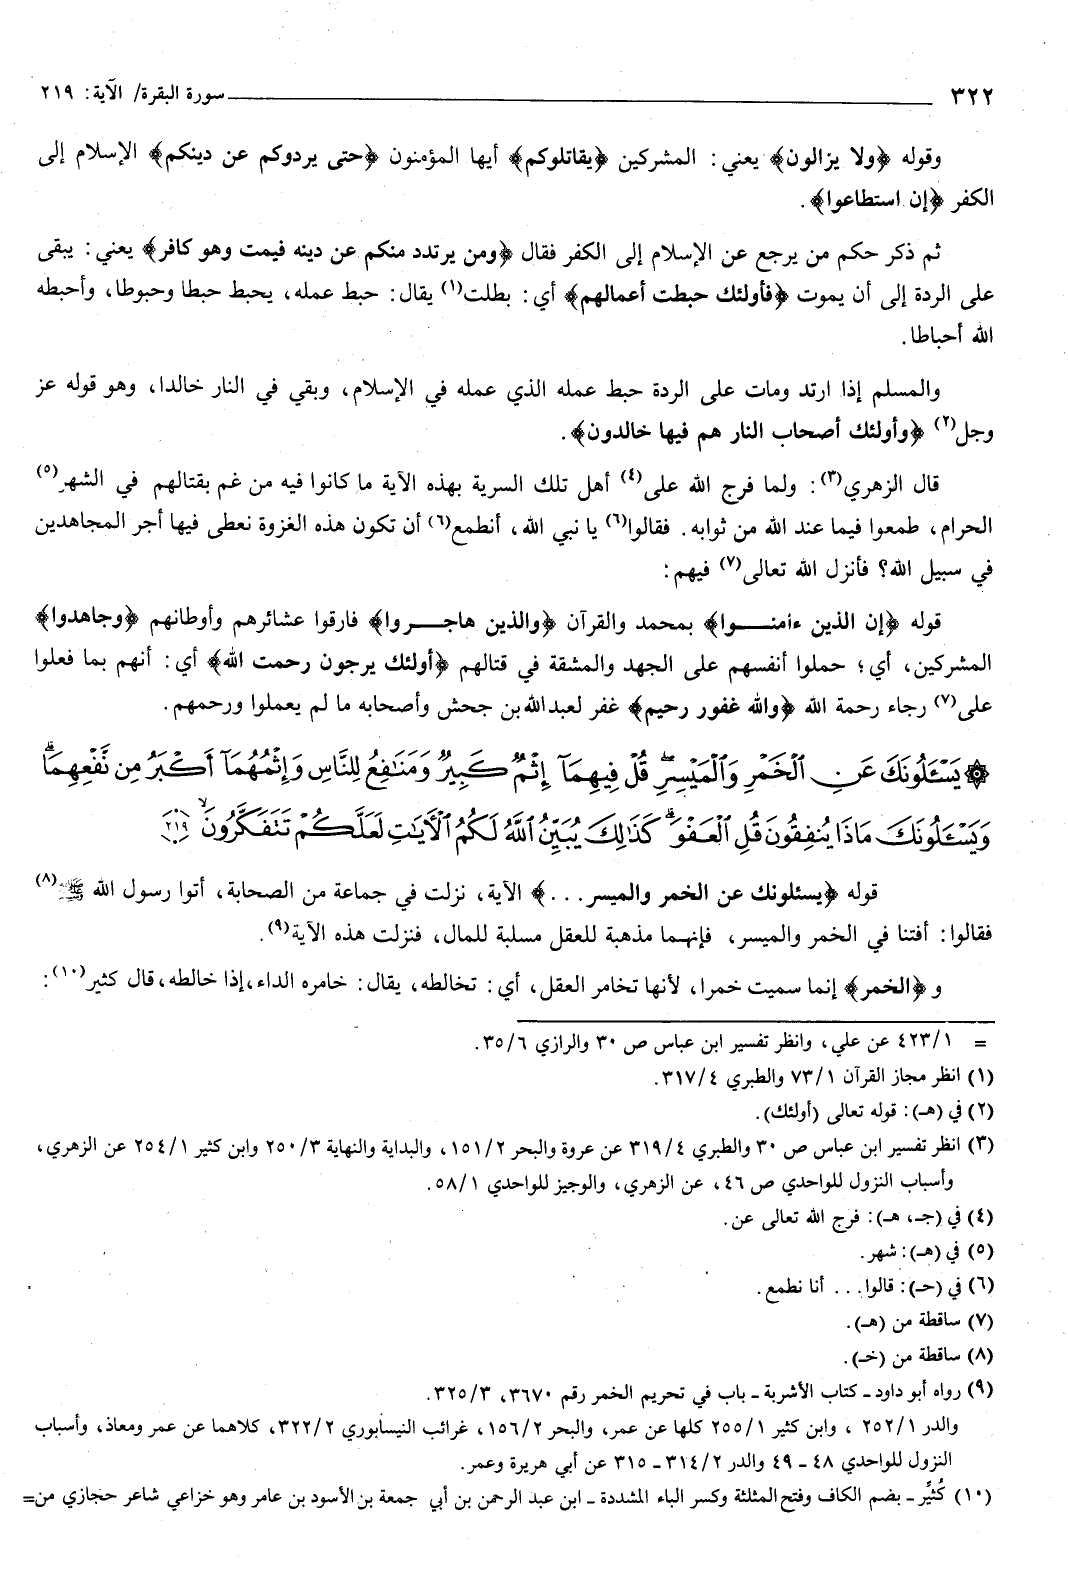 ٣٢٢ سورة البقرة/ الآية: ٢١٩
وقوله ﴿ولا يزالون﴾ يعني: المشركين ﴿يقاتلوكم﴾ أيها المؤمنون ﴿حتى يردوكم عن دينكم﴾ الإسلام إلى
الكفر ﴿إن استطاعوا﴾.
ثم ذكر حكم من يرجع عن الإسلام إلى الكفر فقال ﴿ومن يرتدد منكم عن دينه فيمت وهو كافر﴾ يعني: يبقى
على الردة إلى أن يموت ﴿فأولئك حبطت أعمالهم﴾ أي: بطلت(١) يقال: حبط عمله، يحبط حبطا وحبوطا، وأحبطه
الله أحباطا.
والمسلم إذا ارتد ومات على الردة حبط عمله الذي عمله في الإسلام، وبقي في النار خالدا، وهو قوله عز
وجل(٢) ﴿وأولئك أصحاب النار هم فيها خالدون﴾.
قال الزهري(٣): ولما فرج الله على(٤) أهل تلك السرية بهذه الآية ما كانوا فيه من غم بقتالهم في الشهر(٥)
الحرام، طمعوا فيما عند الله من ثوابه. فقالوا(٦) يا نبي الله، أنطمع(٦) أن تكون هذه الغزوة نعطى فيها أجر المجاهدين
في سبيل الله؟ فأنزل الله تعالى(٧) فيهم:
قوله ﴿إن الذين ءامنـــوا﴾ بمحمد والقرآن ﴿والذين هاجـــروا﴾ فارقوا عشائرهم وأوطانهم ﴿وجاهدوا﴾
المشركين، أي؛ حملوا أنفسهم على الجهد والمشقة في قتالهم ﴿أولئك يرجون رحمت الله﴾ أي: أنهم بما فعلوا
على(٧) رجاء رحمة الله ﴿والله غفور رحيم﴾ غفر لعبدالله بن جحش وأصحابه ما لم يعملوا ورحمهم.
۞ يَسْـَٔلُونَكَ عَنِ ٱلْخَمْرِ وَٱلْمَيْسِرِ ۖ قُلْ فِيهِمَآ إِثْمٌ كَبِيرٌ وَمَنَٰفِعُ لِلنَّاسِ وَإِثْمُهُمَآ أَكْبَرُ مِن نَّفْعِهِمَا ۗ
وَيَسْـَٔلُونَكَ مَاذَا يُنفِقُونَ قُلِ ٱلْعَفْوَ ۗ كَذَٰلِكَ يُبَيِّنُ ٱللَّهُ لَكُمُ ٱلْآيَٰتِ لَعَلَّكُمْ تَتَفَكَّرُونَ ۙ ٢١٩
قوله ﴿يسئلونك عن الخمر والميسر...﴾ الآية، نزلت في جماعة من الصحابة، أتوا رسول الله ﷺ(٨)
فقالوا: أفتنا في الخمر والميسر، فإنهما مذهبة للعقل مسلبة للمال، فنزلت هذه الآية(٩).
و ﴿الخمر﴾ إنما سميت خمرا، لأنها تخامر العقل، أي: تخالطه، يقال: خامره الداء، إذا خالطه، قال كثير(١٠):
= ٤٢٣/١ عن علي، وانظر تفسير ابن عباس ص ٣٠ والرازي ٣٥/٦.
(١) انظر مجاز القرآن ٧٣/١ والطبري ٣١٧/٤.
(٢) في (هـ): قوله تعالى (أولئك).
(٣) انظر تفسير ابن عباس ص ٣٠ والطبري ٣١٩/٤ عن عروة والبحر ١٥١/٢، والبداية والنهاية ٢٥٠/٣ وابن كثير ٢٥٤/١ عن الزهري،
وأسباب النزول للواحدي ص ٤٦، عن الزهري، والوجيز للواحدي ٥٨/١.
(٤) في (جـ، هـ): فرج الله تعالى عن.
(٥) في (هـ): شهر.
(٦) في (حـ): قالوا... أنا نطمع.
(٧) ساقطة من (هـ).
(٨) ساقطة من (خـ).
(٩) رواه أبو داود ـ كتاب الأشربة ـ باب في تحريم الخمر رقم ٣٦٧٠، ٣٢٥/٣.
والدر ٢٥٢/١ ، وابن كثير ٢٥٥/١ كلها عن عمر، والبحر ١٥٦/٢، غرائب النيسابوري ٣٢٢/٢، كلاهما عن عمر ومعاذ، وأسباب
النزول للواحدي ٤٨ ـ ٤٩ والدر ٣١٤/٢ ـ ٣١٥ عن أبي هريرة وعمر.
(١٠) كُثيِّر ـ بضم الكاف وفتح المثلثة وكسر الباء المشددة ـ ابن عبد الرحمن بن أبي جمعة بن الأسود بن عامر وهو خزاعي شاعر حجازي من=